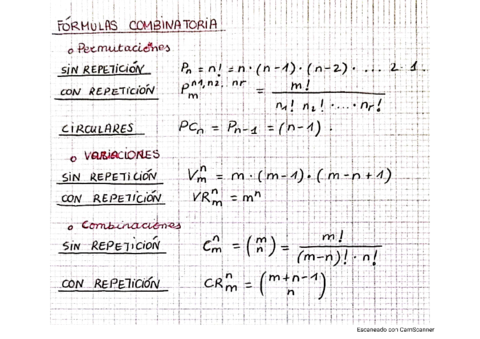 FÓRMULAS COMBINATORIA
o Permutaciones
SIN REPETICIÓN Pn = n! = n · (n-1) · (n-2) · ... 2 · 1.
CON REPETICIÓN P_m^{n1, n2, nr} = m! / (n1! n2! · ... · nr!)
CIRCULARES PCn = Pn-1 = (n-1) .
o VARIACIONES
SIN REPETICIÓN V_m^n = m · (m-1) · (m-n+1)
CON REPETICIÓN VR_m^n = m^n
o Combinaciones
SIN REPETICIÓN C_m^n = (m n) = m! / ((m-n)! · n!)
CON REPETICIÓN CR_m^n = (m+n-1 n)
Escaneado con CamScanner